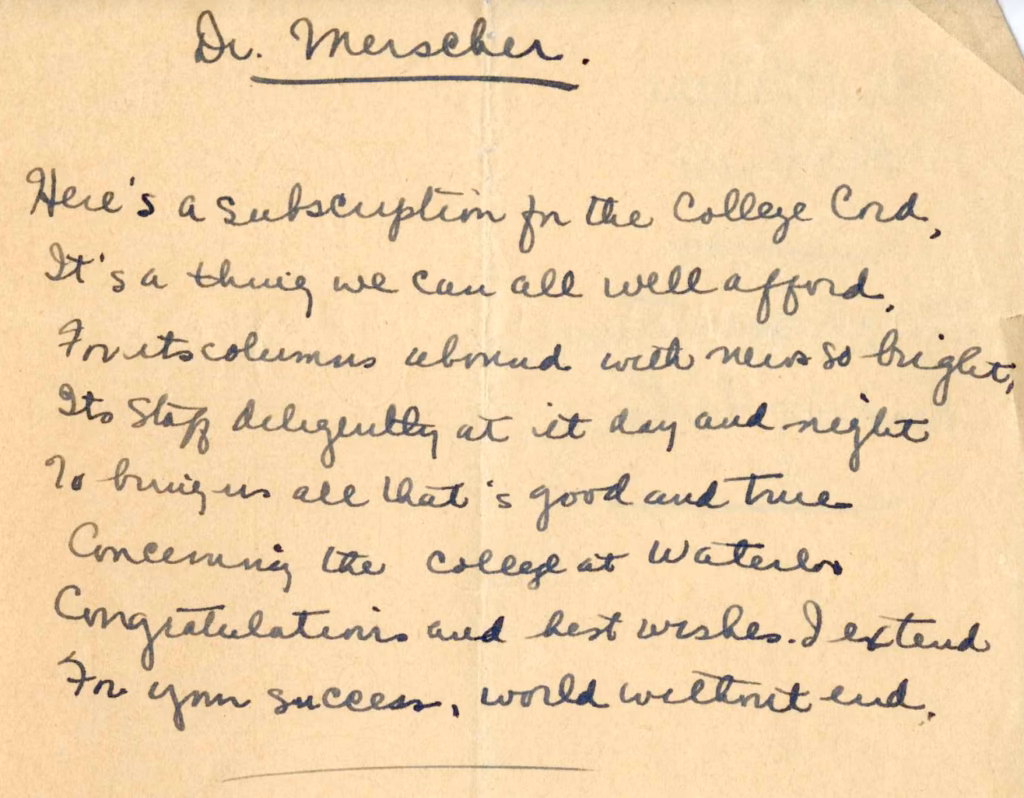 Dr. Merscher.
Here's a subscription for the College Cord,
It's a thing we can all well afford,
For its columns abound with news so bright,
Its Staff deligently at it day and night
To bring us all that's good and true
Concerning the college at Waterloo
Congratulations and best wishes I extend
For your success, world without end.